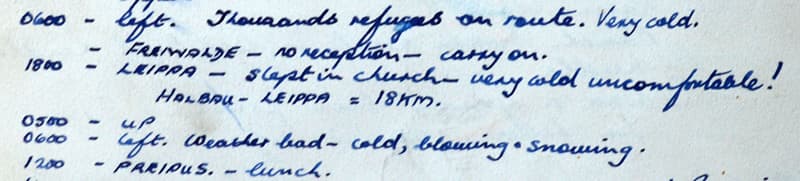 0600 - left. Thousands refugees on route. Very cold.
- FREIWALDE - no reception - carry on.
1800 - LEIPPA - slept in church - very cold uncomfortable!
HALBAU - LEIPPA = 18KM.
0500 - UP
0600 - left. Weather bad - cold, blowing & snowing.
1200 - PREIBUS. - lunch.